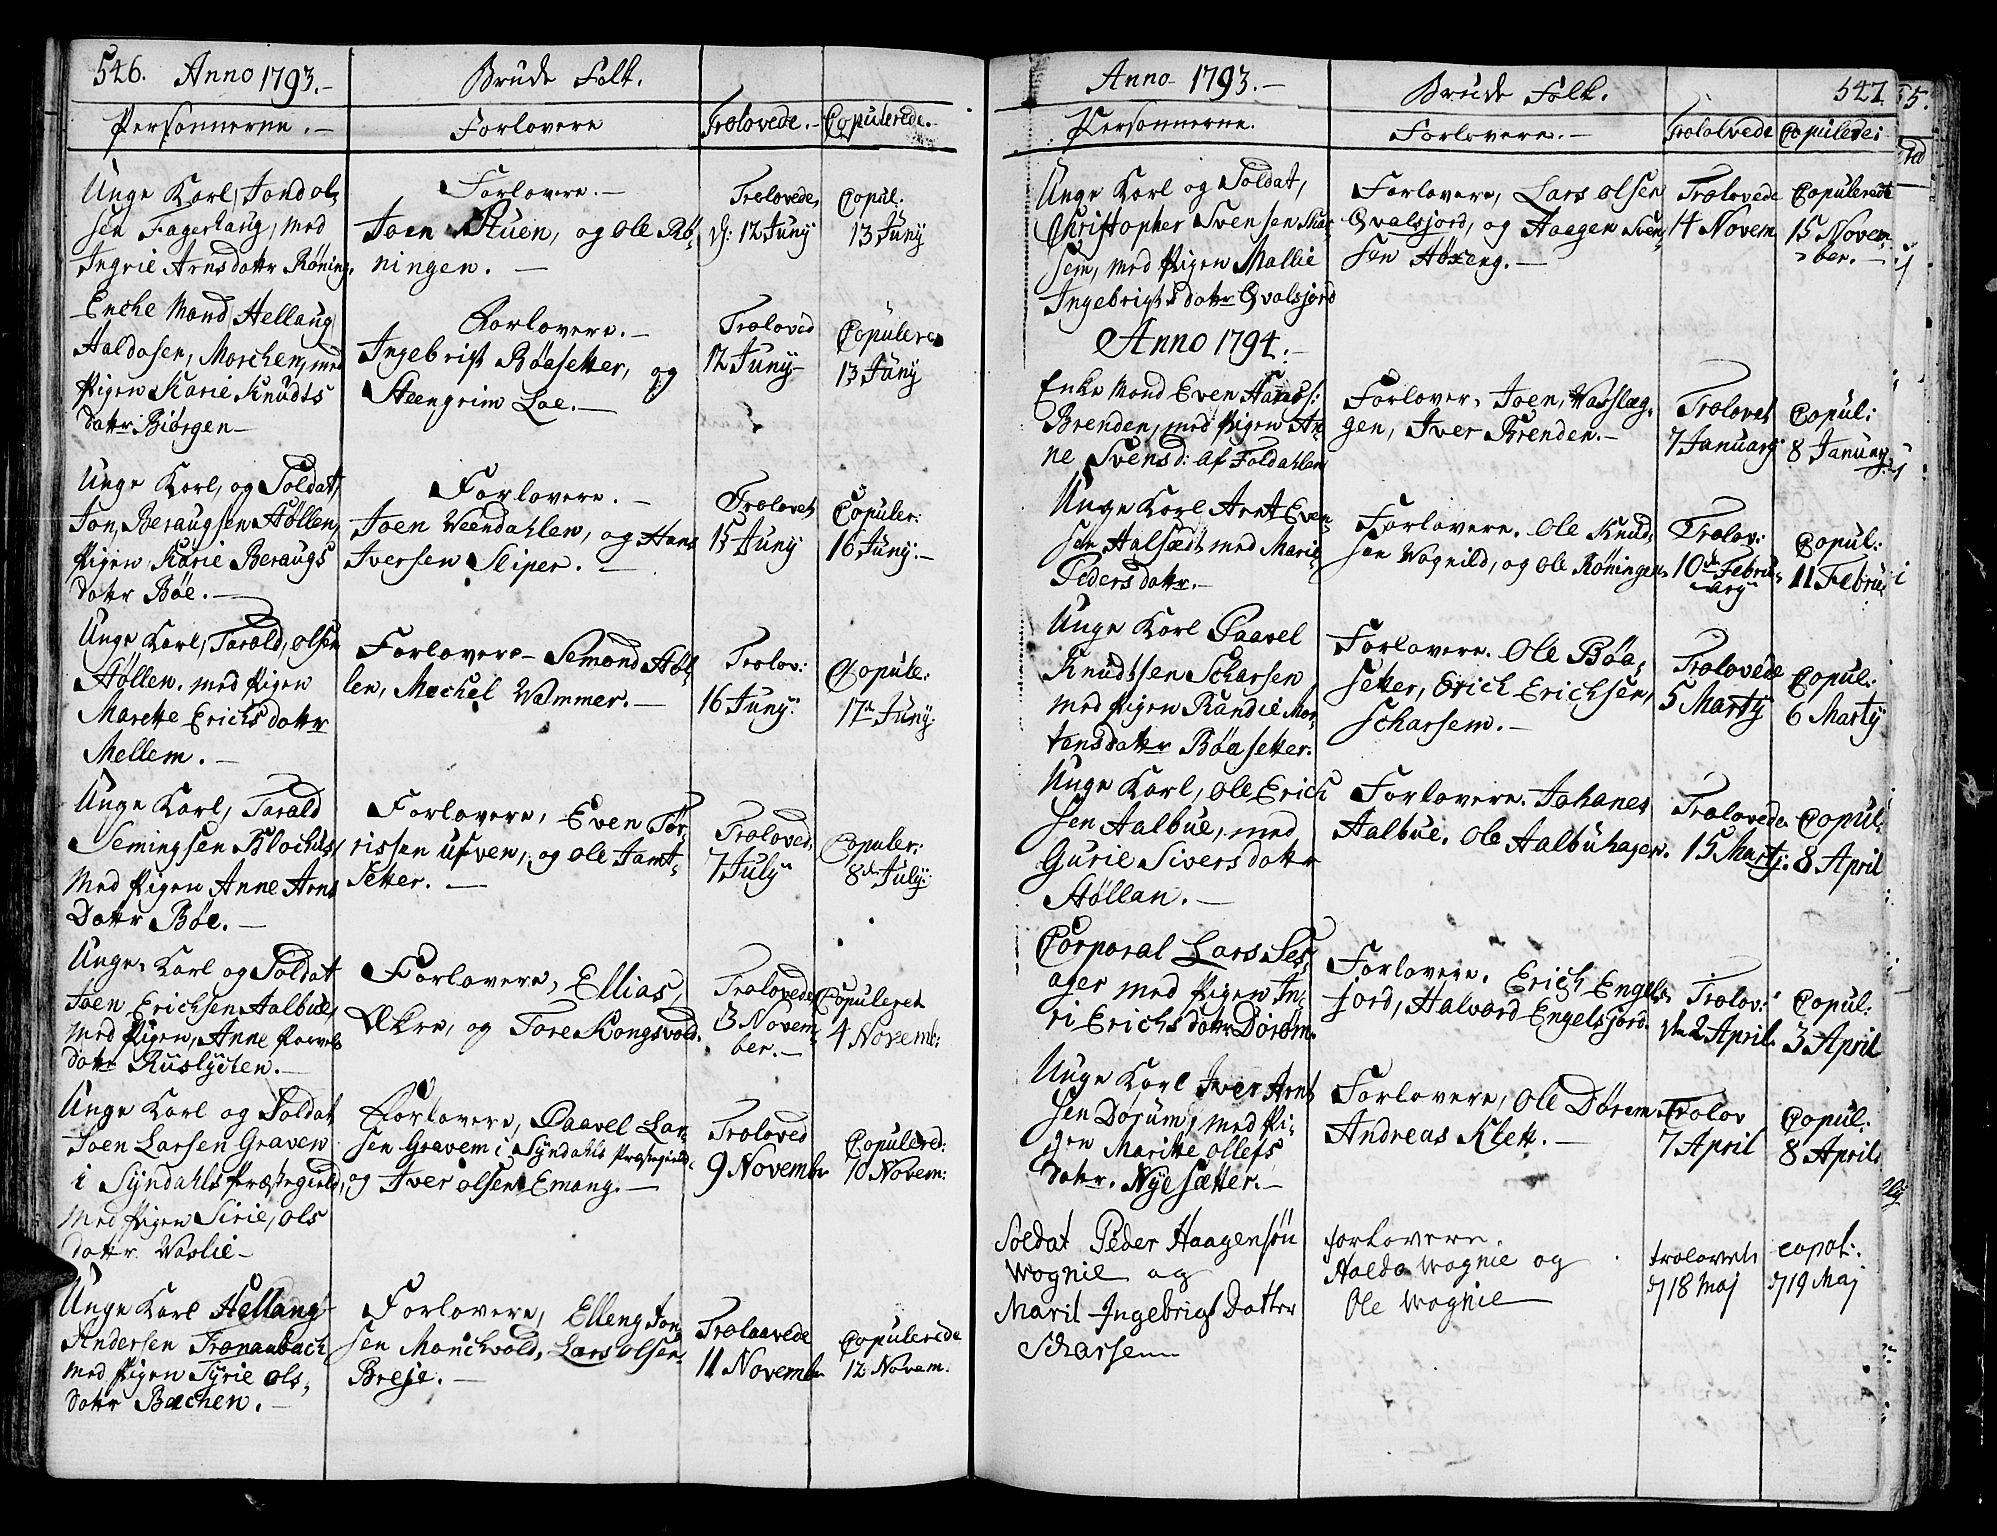 546. Anno 1793.-
Brude Folk.
Personnerne.-
Forlovere
Trolovede.-
Copulerede.-
Unge Karl, Jond ol-
sen Fagerhaug, med
Ingrie Arnsdattr Røning.
Forlovere.-
Joen Stuen, og Ole Rø-
ningen.-
Trolovede,
d: 12 Juny
Copul:
13 Juny
Enche Mand Hellaug
Haldosen, Morchen, med
Pigen Karie Knudts
dattr Biørgen-
Forlovere.-
Ingebrigt Bøasetter, og
Steengrim Loe.-
Troloved
12 Juny-
Copulered
13 Juny
Unge Karl, og Soldat,
Jon, Beraugsen Høllen,
Pigen Karie Beraugs
dattr Bøe.-
Forlovere.-
Joen Veendahlen, og Hans
Iversen Sliper.-
Trolovet
15 Juny
Copuler:
16 Juny.-
Unge Karl, Tarald, olsen
Høllen, med Pigen
Marette Erichsdattr
Mellem.-
Forlovere- Semond Høl-
len, Mechel Vammer.-
Trolov:
16 Juny.
Copule:
17de Juny.
Unge Karl, Tarald
Semingsen Blochus,
med Pigen Anne Arns
Dattr Bøe.-
Forlovere, Even Tør-
rissen Ufven, og Ole Jamt-
Setter.-
Troloved
7 July
Copuler:
8de July:
Unge Karl og Soldat
Joen Erichsen Aalbue,
med Pigen, Anne Povels
dattr Ruslychen.-
Forlovere, Ellias,
Økre, og Tore Kongsvold.
Trolovede
3 Novem-
ber.-
Copuleret
4 Novemb:
Unge Karl og Soldat
Joen Larsen Graven
i Syndahls Præstegield,
med Pigen Sirie, ols
dattr Vaslie-
Forlovere, Paavel Lar-
sen Gravem i Syndahls Præstegield,
og Iver olsen Emang.-
Troloved
9 Novembr
Copulered:
10 Novem:
Unge Karl Hellang
Andersen Tronanbach
med Pigen Syrie ols-
dattr Bæchen.-
Forlovere, Elleng Jon-
sen Monchvold, Lars olsen
Breje.-
Trolaavede
11 Novembr
Copulerede
12 Novem.
Anno 1793.-
Brude Folk.
547
Personnerne.
Forlovere.-
Trololvede
Copulere:
Unge Karl og Soldat,
Christopher Svensen Skar-
sem, med Pigen Mallie
Ingebrigtsdattr Qvalsjord
Forlovere, Lars olsen
Qvalsjord, og Haagen Sven-
sen Høxeng.-
Trolovede
14 Novem
Copulerede
15 Novem-
ber.-
Anno 1794.-
Enke Mand Even Hands:
Brenden, med Pigen An-
ne, Svensd: af Foldahlen
Forlover, Joen, Vasslæg-
gen, Iver Brenden.-
Trolovet
7 January
Copul:
8 January
Unge Karl Arnt Even-
sen Halsædt med Marie
Pedersdattr.-
Forlovere. Ole Knud-
sen Vognild, og Ole Røningen.
Trolov:
10de Febru-
ary
Copul:
11 Febru
Unge Karl Paavel
Knudtsen Scharsen
med Pigen Randie Mor-
tensdattr Bøasetter.
Forlovere. Ole Bøa-
setter, Erich Erichsen,
Scharsem.-
Trolovede
5 Marty
Copul:
6 Marty
Unge Karl, Ole Erich
sen Aalbue, med
Gurie Siversdattr
Høllan.-
Forlovere. Johanes
Aalbue. Ole Aalbuhagen.
Trolovede
15 Marty:
Copul:
8 April
Corporal Lars Ses-
ager med Pigen In-
ri Erichsdattr Dorøm.
Forlovere. Erich Engels-
jord, Halvord Engelsjord.
Trolov:
den 2 April.
Copul:
3 April
Unge Karl Iver Arnt
sen Dorum, med Pi-
gen Maritte Ollefs
dattr. Nye Sætter.-
Forlovere, Ole Dørem
Andreas Klett.-
Trolov
7 April
Copul:
8 April
Soldat Peder Haagensøn
Wognie og
Marit Ingebrigt Datter
Scharsem
forlovere.
Haldo Wognie og
Ole Wognie
trolovede
d 18 Maj
copol:
d 19 Maj